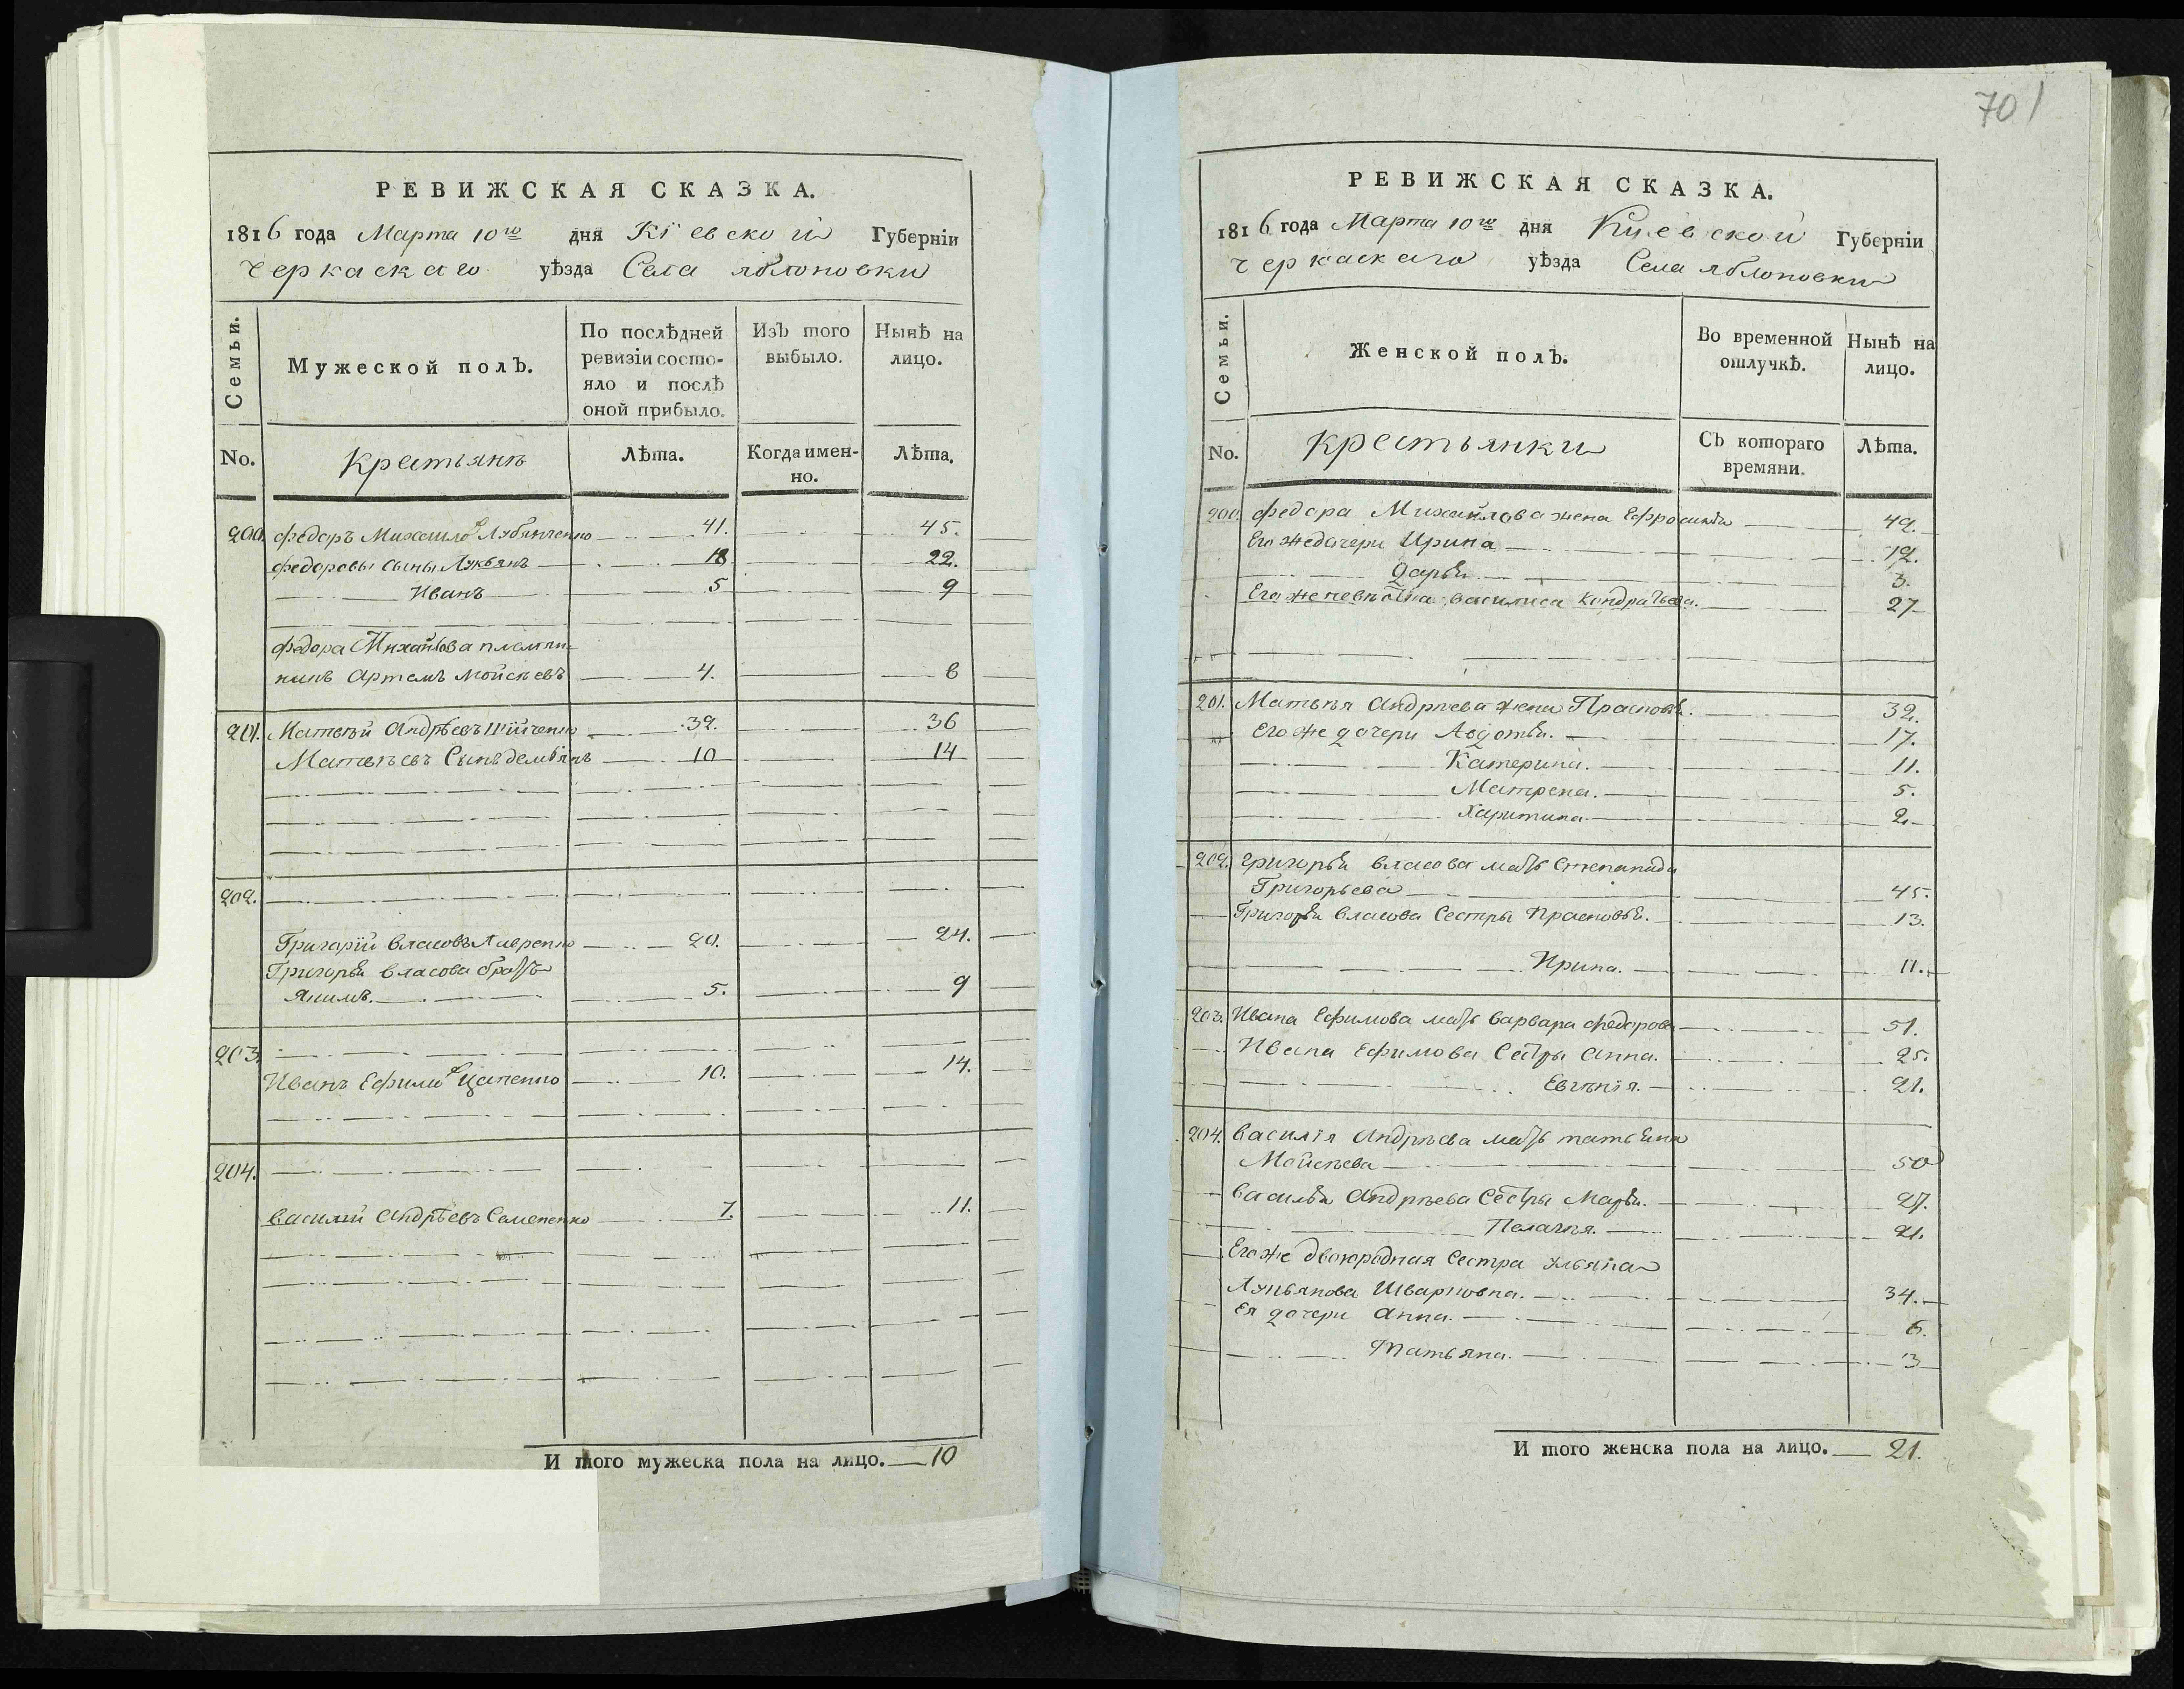 РЕВИЖСКАЯ СКАЗКА.
1816 года Марта 10го дня Кіевской Губерніи
Черкаскаго уѣзда Села яблоновки
Семьи.
Мужеской полъ.
По послѣдней ревизіи состо-
яло и послѣ
оной прибыло.
Изъ того
выбыло.
Нынѣ на
лицо.
No.
Крестьянъ
Лѣта.
Когда имен-
но.
Лѣта.
200. федоръ Михайловъ 41. 45.
федоровы сыны Лукьянъ 18. 22.
Иванъ 5 9
федора Михайлова племян-
никъ Артемъ Мойсѣевъ 4. 8
201. Матвѣй Андрѣевъ 32. 36
Матвѣевъ Сынъ демьянъ 10 14
202.
Григорій власовъ Лавренко 20. 24.
Григорья власова братъ
Якимъ. 5. 9
203.
Иванъ Ефимовъ Цапенко 10. 14.
204.
василий Андрѣевъ Семененко 7. 11.
И того мужеска пола на лицо. 10
701
РЕВИЖСКАЯ СКАЗКА.
1816 года Марта 10го дня Киевской Губерніи
черкаскаго уѣзда Села яблоновки
Семьи.
Женской полъ.
Во временной
отлучкѣ.
Нынѣ на
лицо.
No.
крестьянки
Съ котораго
времяни.
Лѣта.
200. федора Михайлова жена Ефросинія 42.
Его же дочери Ирина 12.
Дарья 3.
Его же невѣстка василиса Кондратьева. 27
201. Матвѣя Андрѣева жена Прасковья. 32.
Его же дочери Авдотья. 17.
Катерина. 11.
Матрена. 5.
Харитина. 2.
202. григорья власова мать Степанида
Григорьева 45.
Григорья власова Сестры Прасковья. 13.
Ирина. 11.
203. Ивана Ефимова мать варвара федорова 51.
Ивана Ефимова Сестры Анна. 25.
Евгенія. 21.
204. василія Андрѣева мать татьяна
Мойсѣева 50
василья Андрѣева Сестры Марья. 27.
Пелагѣя. 21.
Его же двоюродная Сестра ульяна
Лукьянова 34.
Ея дочери Анна. 6.
Татьяна. 3
И того женска пола на лицо. 21.